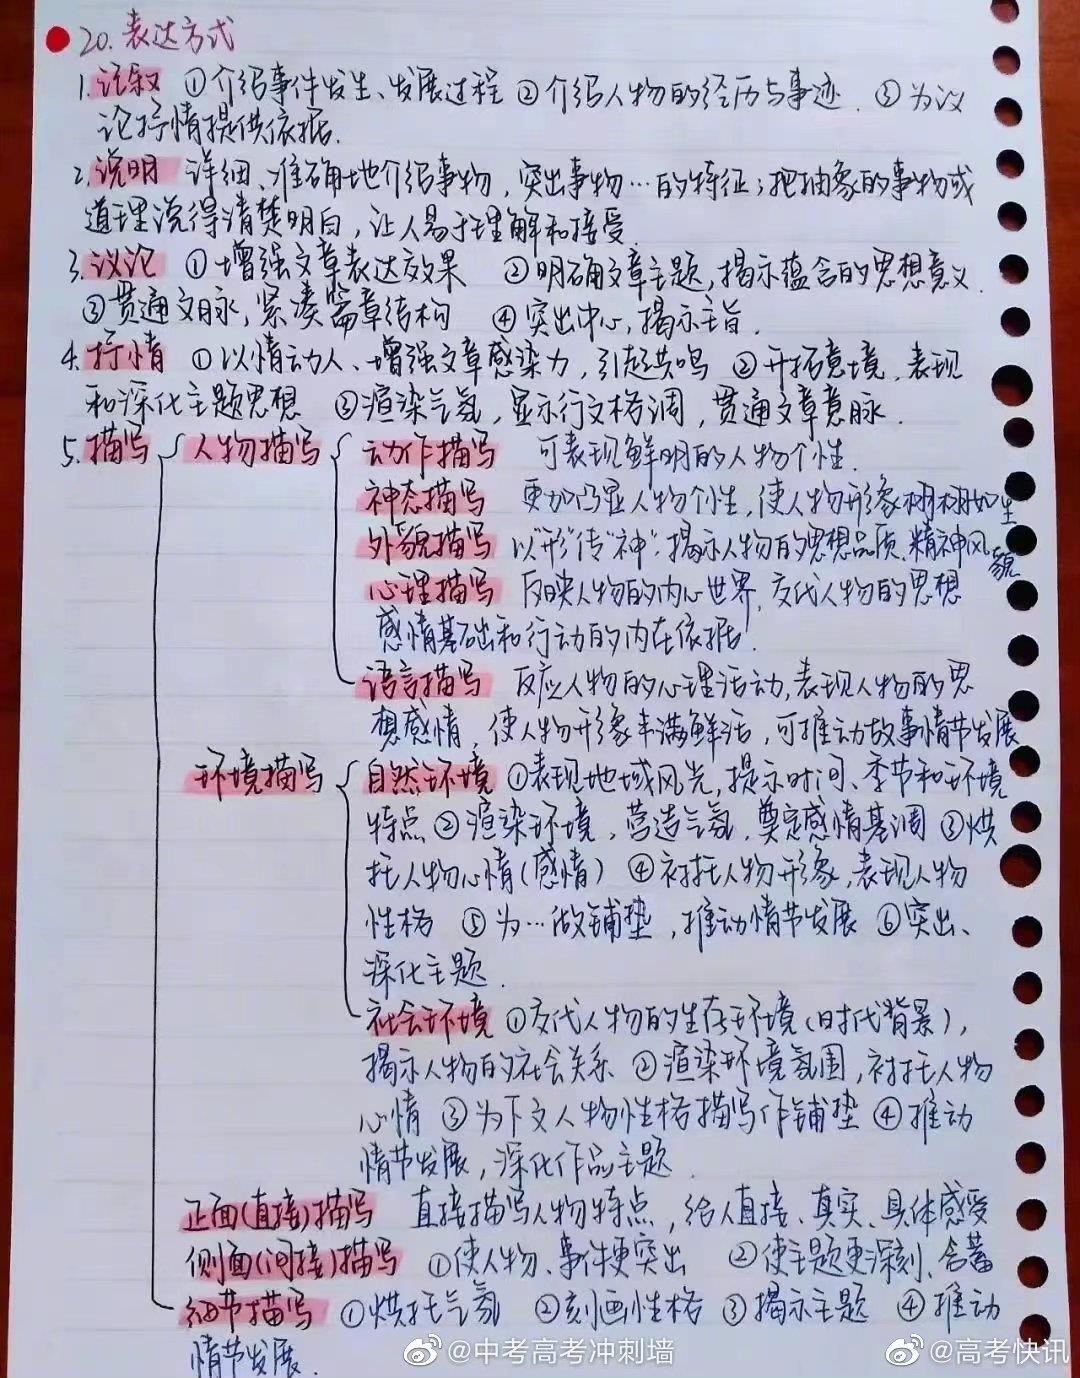 20.表达方式
1.记叙 ①介绍事件发生、发展过程 ②介绍人物的经历与事迹. ③为议
论抒情提供依据.
2.说明 详细、准确地介绍事物,突出事物…的特征;把抽象的事物或
道理说得清楚明白,让人易于理解和接受.
3.议论 ①增强文章表达效果 ②明确文章主题,揭示蕴含的思想意义.
③贯通文脉,紧凑篇章结构 ④突出中心,揭示主旨.
4.抒情 ①以情动人、增强文章感染力,引起共鸣 ②开拓意境,表现
和深化主题思想 ③渲染气氛,显示行文格调,贯通文章意脉.
5.描写 人物描写 动作描写 可表现鲜明的人物个性.
神态描写 更加凸显人物个性,使人物形象栩栩如生
外貌描写 以“形”传“神”.揭示人物的思想品质、精神风貌
心理描写 反映人物的内心世界,交代人物的思想
感情基础和行动的内在依据.
语言描写 反应人物的心理活动,表现人物的思
想感情,使人物形象丰满鲜活,可推动故事情节发展
环境描写 自然环境 ①表现地域风光,提示时间、季节和环境
特点 ②渲染环境,营造气氛,奠定感情基调 ③烘
托人物心情(感情) ④衬托人物形象,表现人物
性格 ⑤为…做铺垫,推动情节发展 ⑥突出、
深化主题.
社会环境 ①交代人物的生存环境(时代背景),
揭示人物的社会关系 ②渲染环境氛围,衬托人物
心情 ③为下文人物性格描写作铺垫 ④推动
情节发展,深化作品主题.
正面(直接)描写 直接描写人物特点,给人直接、真实、具体感受
侧面(间接)描写 ①使人物、事件更突出 ②使主题更深刻、含蓄
细节描写 ①烘托气氛 ②刻画性格 ③揭示主题 ④推动
情节发展.
@中考高考冲刺墙 @高考快讯